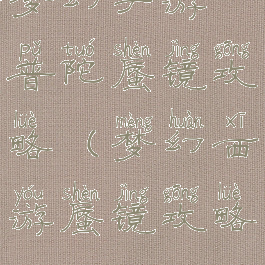 pǔ tuó shèn jìng gōng
普陀蜃镜攻
lüè mèng huàn xī
略(梦幻西
yóu shèn jìng gōng lüè
游蜃镜攻略